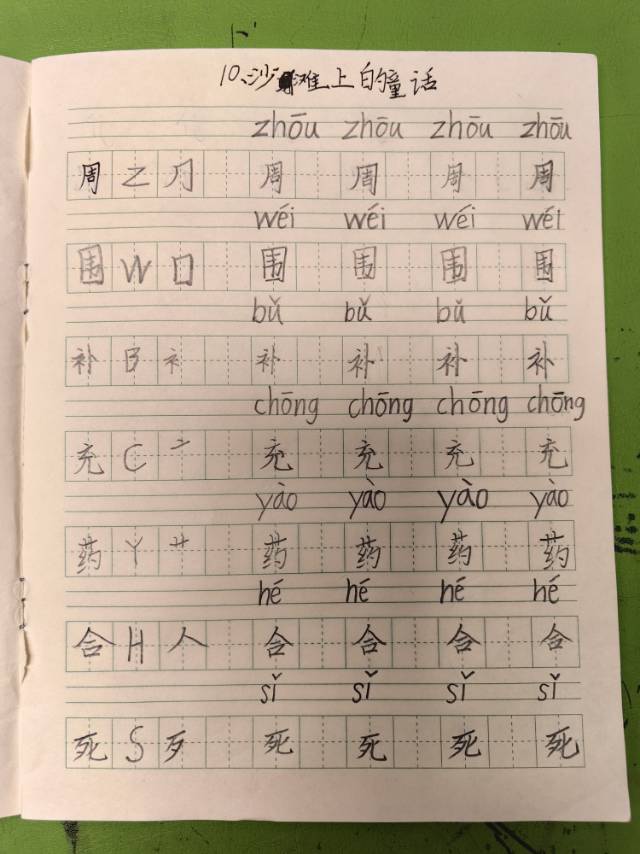 10、沙滩上的童话
zhōu zhōu zhōu zhōu
周 Z 冂 周 周 周 周
wéi wéi wéi wéi
围 W 囗 围 围 围 围
bǔ bǔ bǔ bǔ
补 B 衤 补 补 补 补
chōng chōng chōng chōng
充 C 亠 充 充 充 充
yào yào yào yào
药 Y 艹 药 药 药 药
hé hé hé hé
合 H 人 合 合 合 合
sǐ sǐ sǐ sǐ
死 S 歹 死 死 死 死